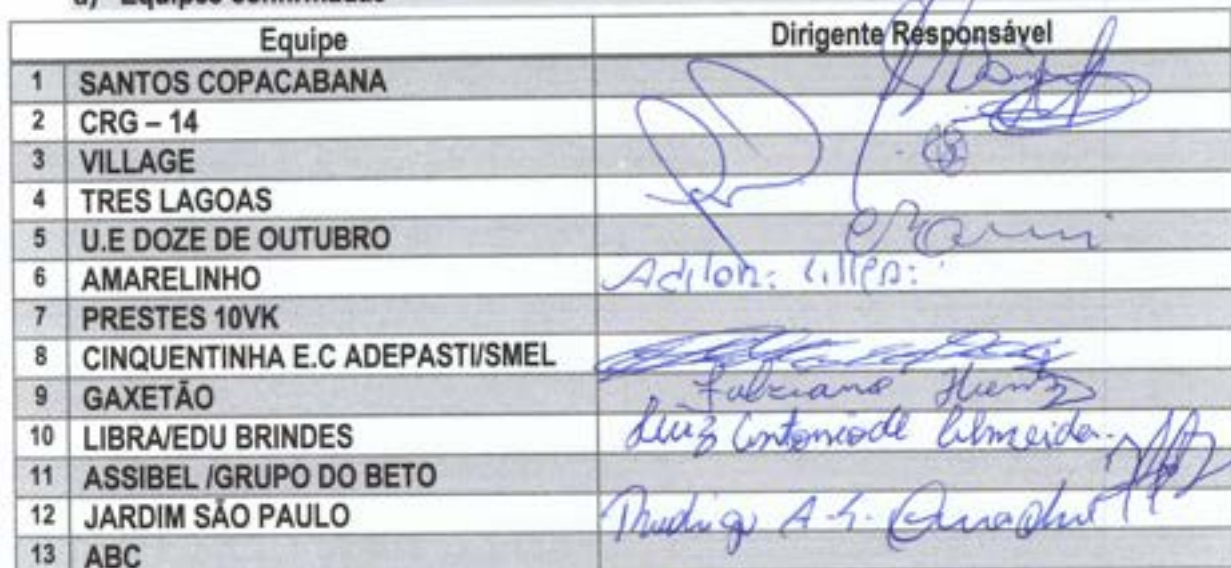 a) Equipes confirmadas
Equipe Dirigente Responsável
1 SANTOS COPACABANA
2 CRG – 14
3 VILLAGE
4 TRES LAGOAS
5 U.E DOZE DE OUTUBRO
6 AMARELINHO
7 PRESTES 10VK
8 CINQUENTINHA E.C ADEPASTI/SMEL
9 GAXETÃO
10 LIBRA/EDU BRINDES Luiz Antonio de Almeida
11 ASSIBEL /GRUPO DO BETO
12 JARDIM SÃO PAULO Rodrigo A.
13 ABC